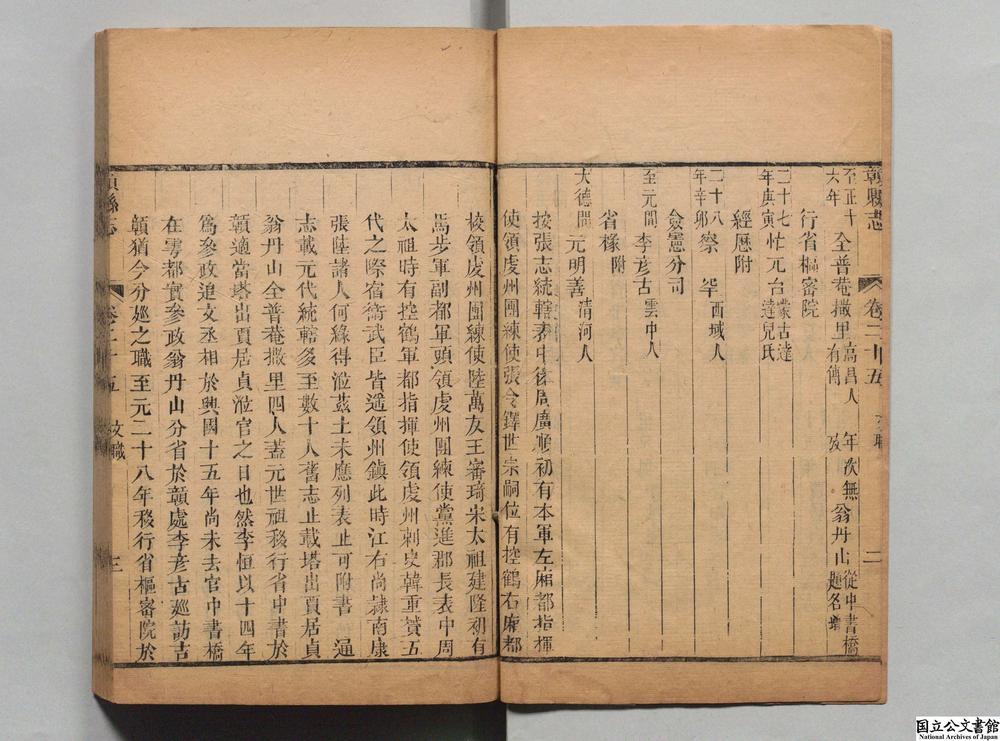 贛縣志 卷二十五 文職 二
至正十六年 全普菴撒里 高昌人有傳 年次無攷 翁丹山 從中書橋題名增
行省樞密院
二十七年庚寅 忙元台 蒙古達達兒氏
經歷附
二十八年辛卯 察罕 西域人
僉憲分司
至元間 李彥古 雲中人
省掾附
大德間 元明善 清河人
按張志統轄表中後周廣順初有本軍左廂都指揮
使領虔州團練使張令鐸世宗嗣位有控鶴右廂都
校領虔州團練使陸萬友王審琦宋太祖建隆初有
馬步軍副都軍頭領虔州團練使黨進郡長表中周
太祖時有控鶴軍都指揮使領虔州刺史韓重贇五
代之際宿衛武臣皆遥領州鎮此時江右尚隷南康
張陸諸人何緣得涖茲土未應列表止可附書 通
志載元代統轄多至數十人舊志止載塔出賈居貞
翁丹山全普菴撒里四人蓋元世祖移行省中書於
贛適當塔出賈居貞涖官之日也然李恒以十四年
爲參政追文丞相於興國十五年尚未去官中書橋
在雩都實參政翁丹山分省於贛處李彥古廵訪古
贛猶今分廵之職至元二十八年移行省樞密院於
贛縣志 卷二十五 文職 三
国立公文書館
National Archives of Japan